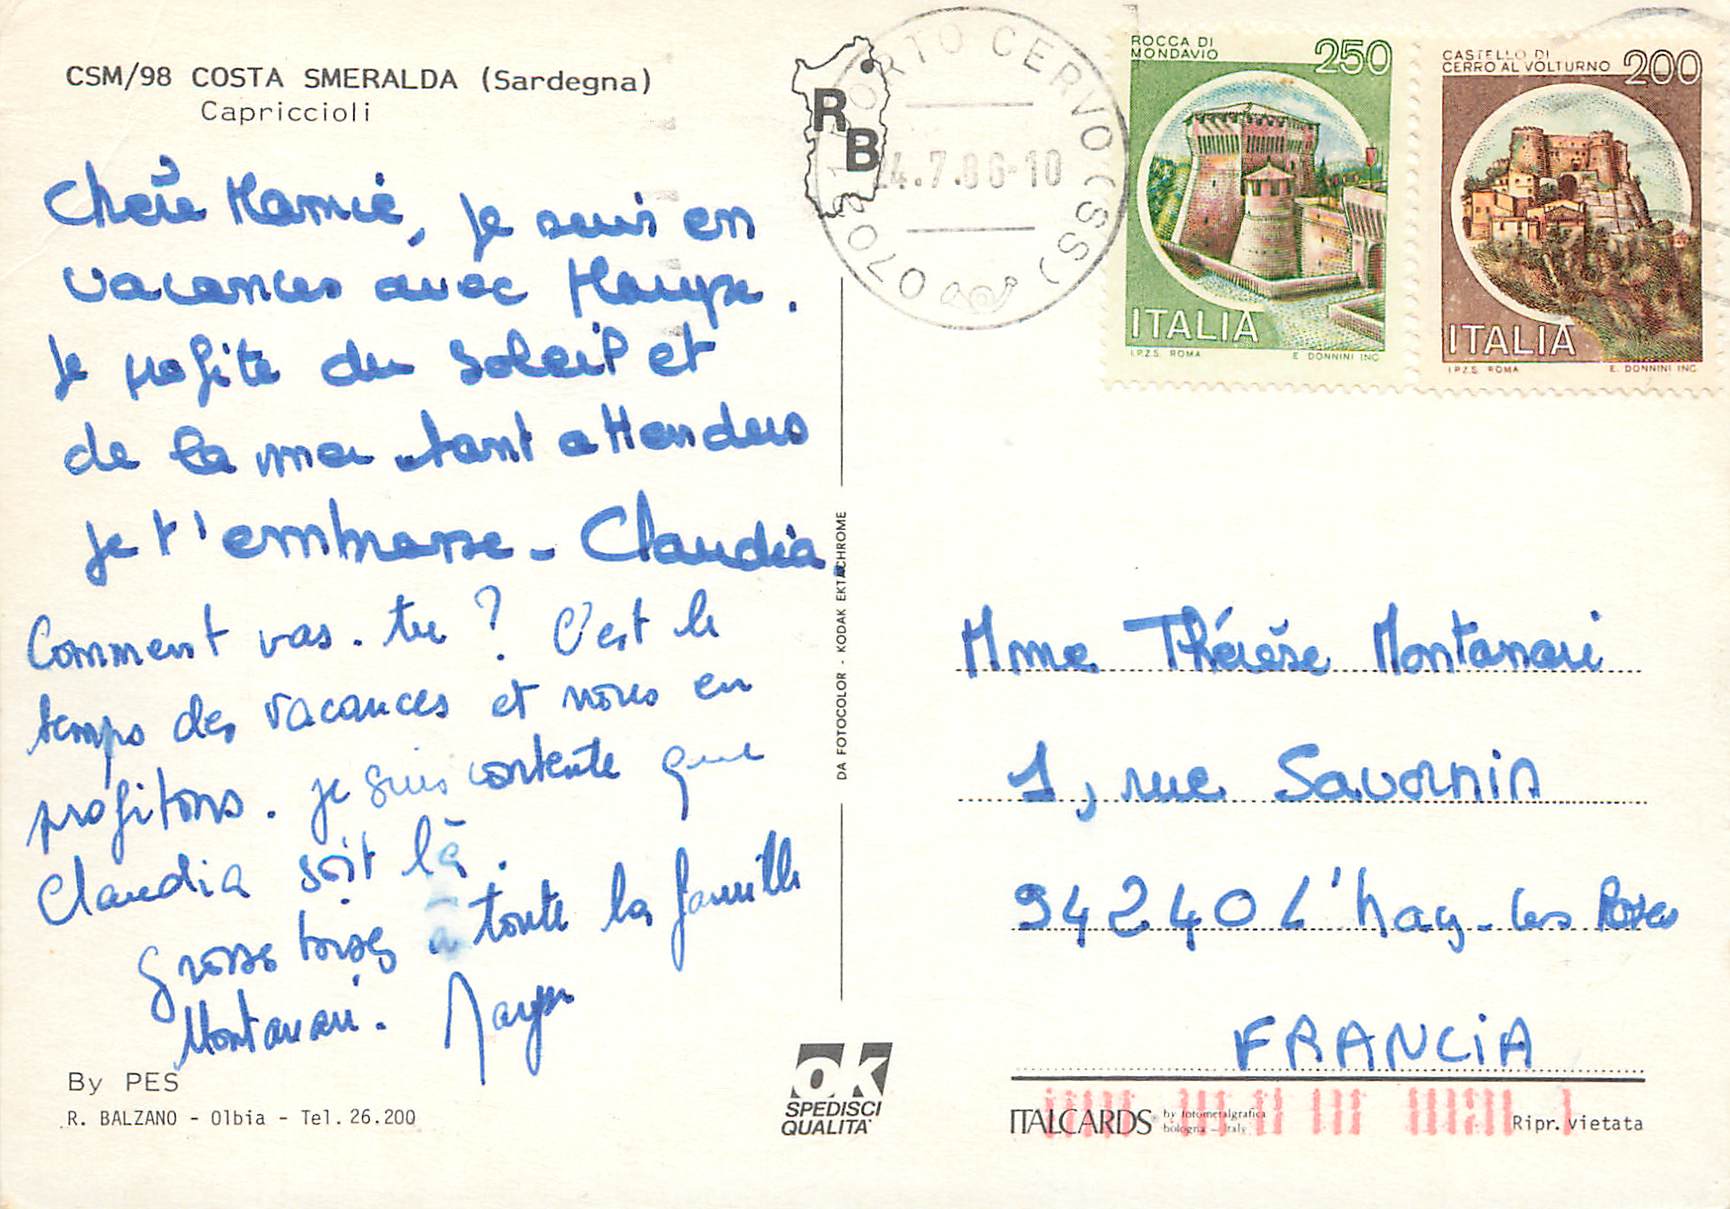 CSM/98 COSTA SMERALDA (Sardegna)
Capriccioli
Chère Mamie, je suis en
vacances avec Maryse.
je profite du soleil et
de la mer tant attendus
je t'embrasse - Claudia.
Comment vas-tu ? C'est le
temps des vacances et nous en
profitons. je suis contente que
Claudia soit là.
grosses bises à toute la famille
Montanari.
By PES
R. BALZANO - Olbia - Tel. 26.200
DA FOTOCOLOR - KODAK EKTACHROME
RB
07021 PORTO CERVO (SS)
24.7.86-10
ROCCA DI
MONDAVIO
250
ITALIA
I.P.Z.S. ROMA E. DONNINI INC.
CASTELLO DI
CERRO AL VOLTURNO
200
ITALIA
I.P.Z.S. ROMA E. DONNINI INC.
Mme Thérèse Montanari
1, rue Savornin
94240 L'hay-les Roses
FRANCIA
OK
SPEDISCI
QUALITA'
ITALCARDS by fotometalgrafica
bologna - Italy
Ripr. vietata